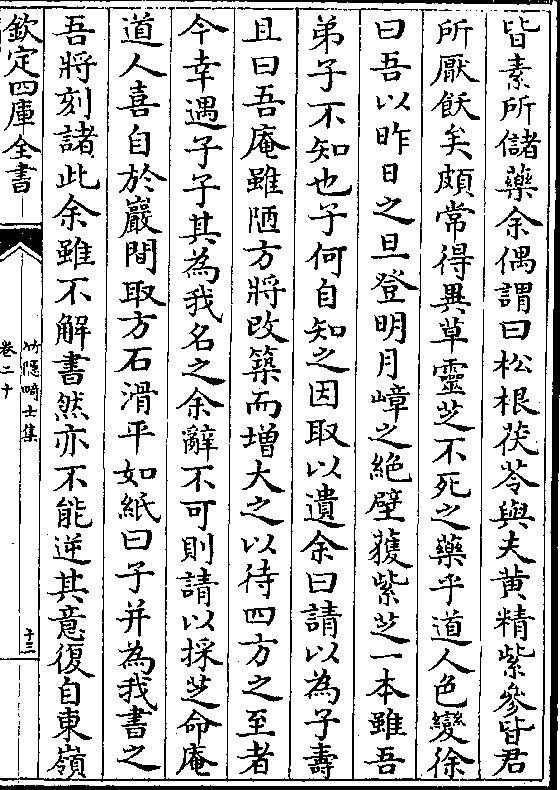 皆素所儲藥余偶謂曰松根茯苓與夫黄精紫參皆君
所厭飫矣頗常得異草靈芝不死之藥乎道人色變徐
曰吾以昨日之旦登明月嶂之絶壁獲紫芝一本雖吾
弟子不知也子何自知之因取以遺余曰請以為子壽
且曰吾庵雖陋方將改築而增大之以待四方之至者
今幸遇子子其為我名之余辭不可則請以採芝命庵
道人喜自於巖間取方石滑平如紙曰子并為我書之
吾將刻諸此余雖不解書然亦不能逆其意復自東嶺
欽定四庫全書
竹隠畸士集
卷二十
十三